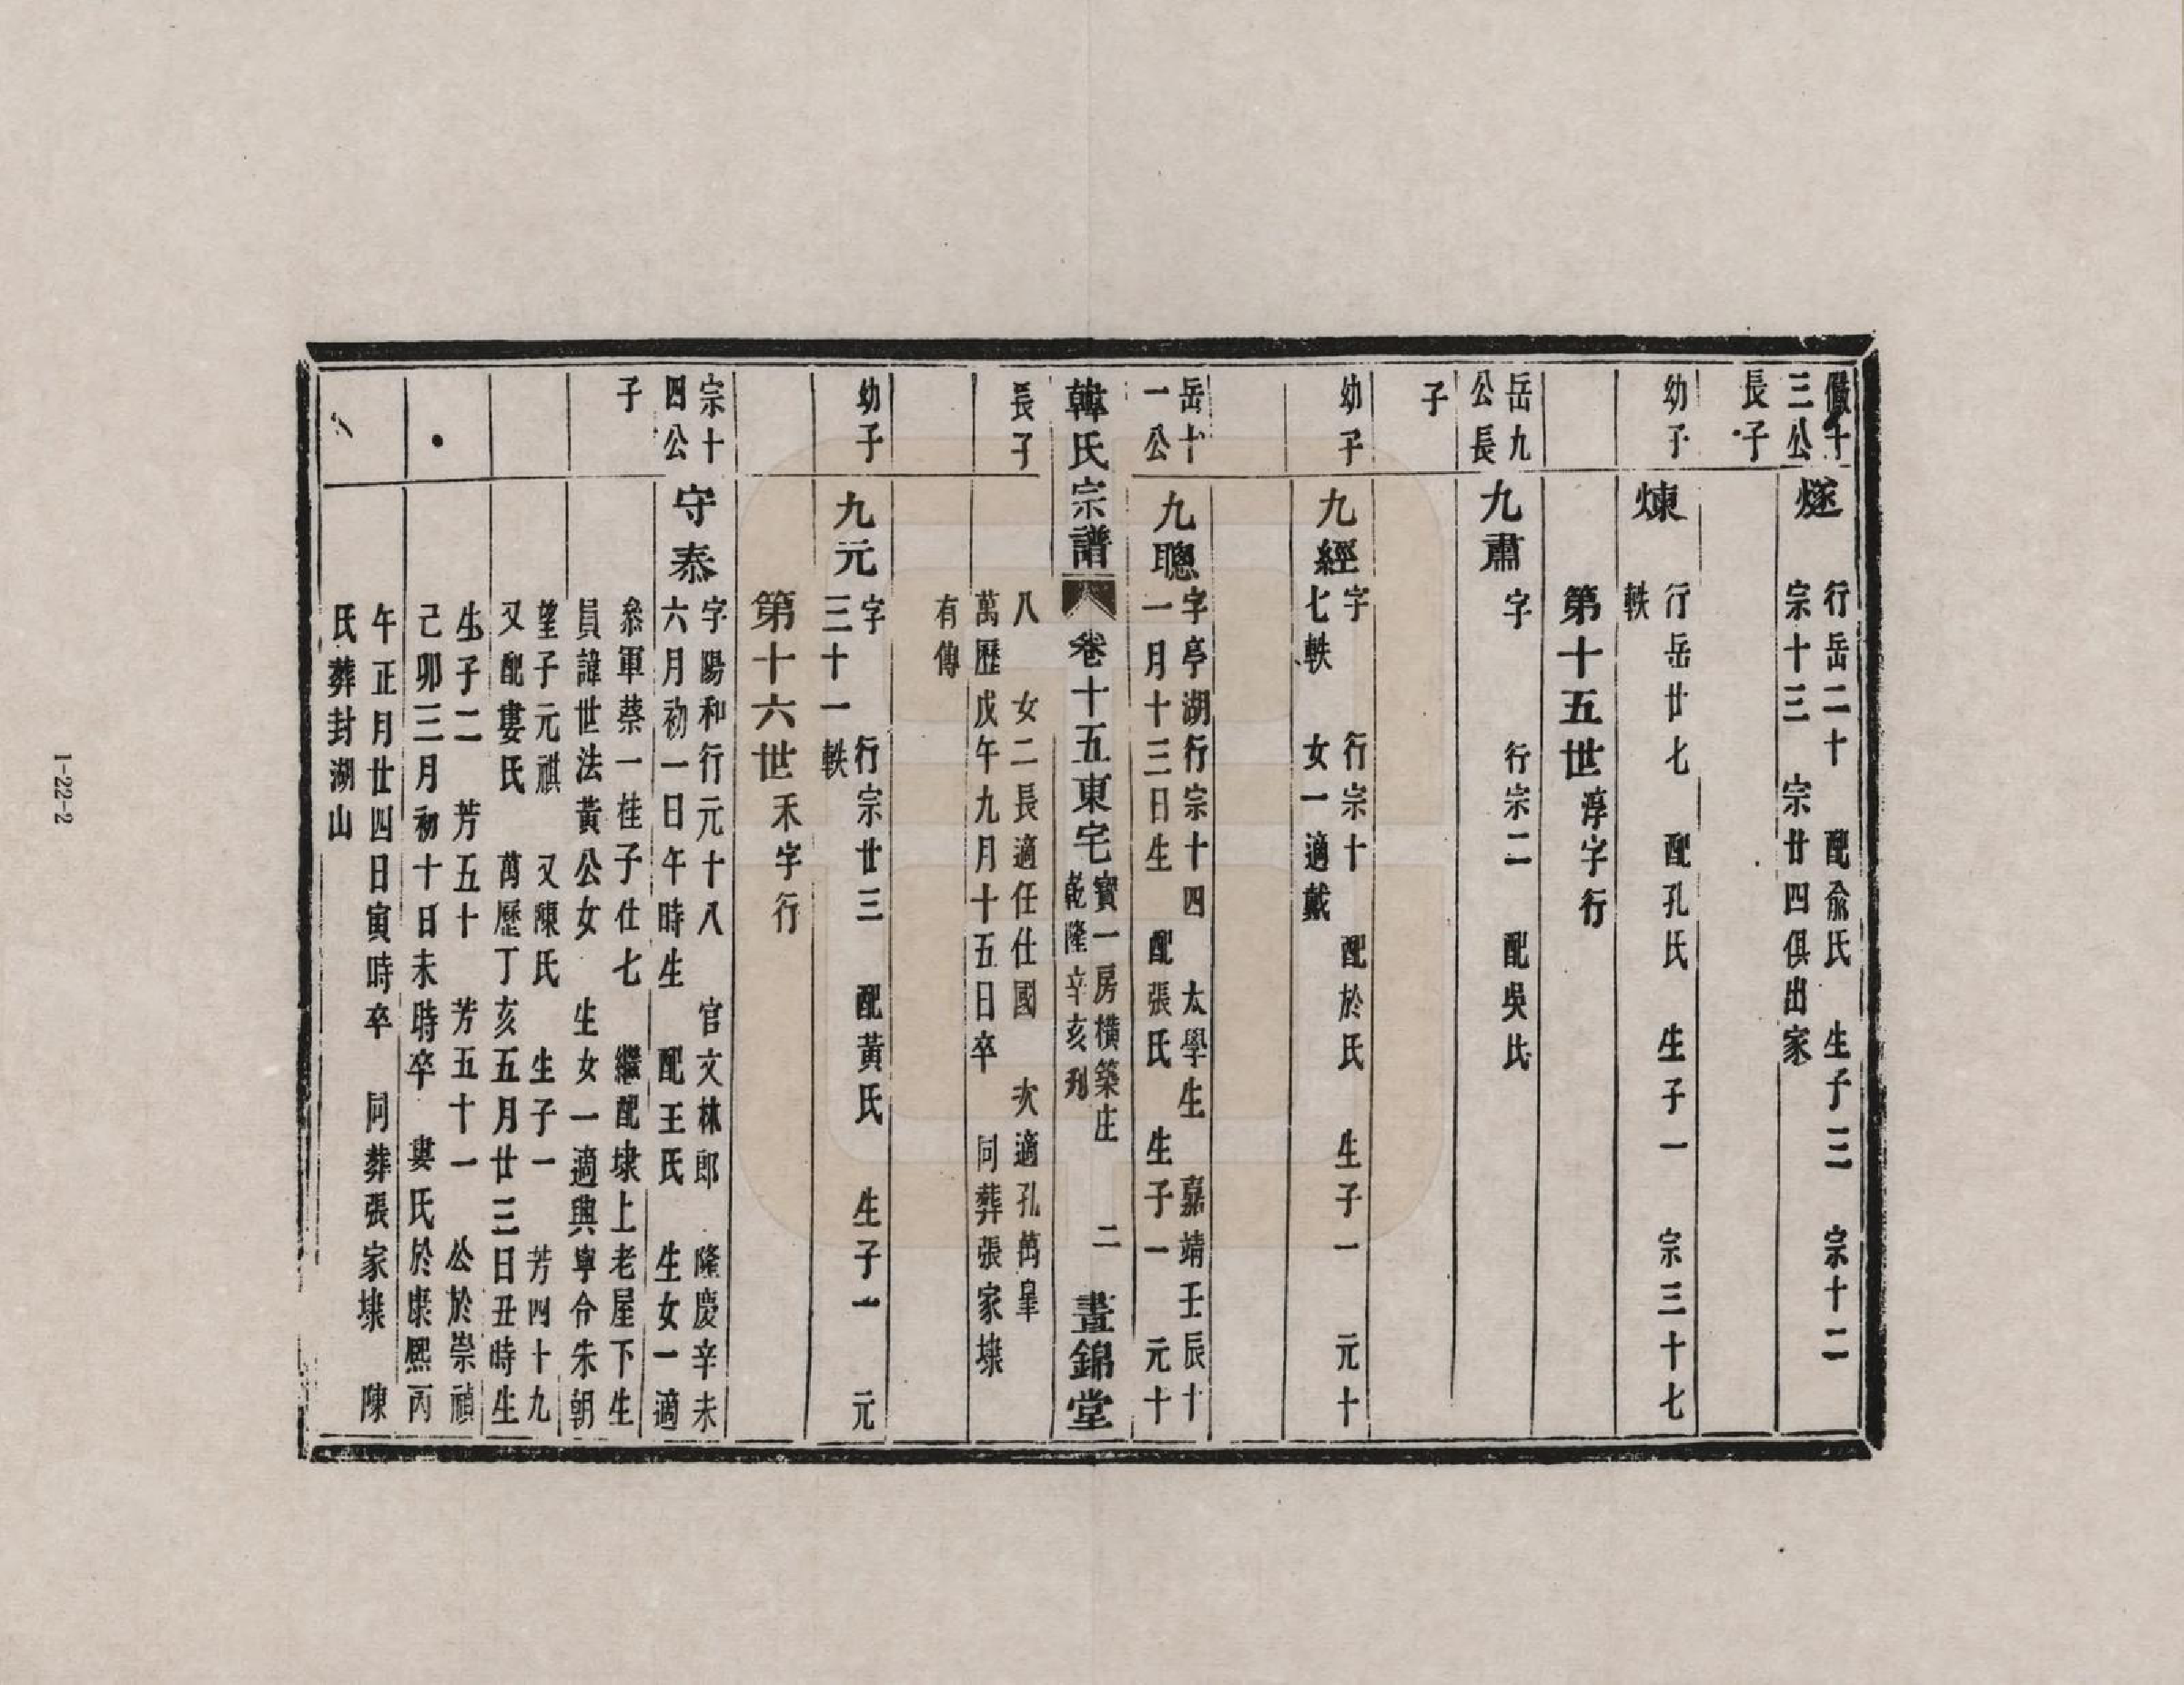 十
三公
長子
燧
行岳二十　配俞氏　生子三　宗十二
宗十三　宗廿四俱出家
幼子
煉
行岳廿七　配孔氏　生子一　宗三十七
軼
第十五世淳字行
岳九
公長
子
九肅
字　行宗二　配吳氏
幼子
九經
字　行宗十　配於氏　生子一　元十
七軼　女一適戴
岳十
一公
九聰
字亭湖行宗十四　太學生　嘉靖壬辰十
一月十三日生　配張氏　生子一　元十
韓氏宗譜
卷十五東宅
寳一房橫築庄
乾隆辛亥刋
二
晝錦堂
長子
八　女二長適任仕國　次適孔萬皐
萬歷戊午九月十五日卒　同葬張家垛
有傳
幼子
九元
字　行宗廿三　配黃氏　生子一　元
三十一軼
第十六世禾字行
宗十
四公
子
守泰
字陽和行元十八　官文林郎　隆慶辛未
六月初一日午時生　配王氏　生女一適
叅軍蔡一桂子仕七　繼配埭上老屋下生
員諱世法黃公女　生女一適興寧令朱朝
望子元祺　又陳氏　生子一　芳四十九
又配婁氏　萬歷丁亥五月廿三日丑時生
生子二　芳五十　芳五十一　公於崇禎
己卯三月初十日未時卒　婁氏於康熙丙
午正月廿四日寅時卒　同葬張家垛　陳
氏葬封湖山
1-22-2